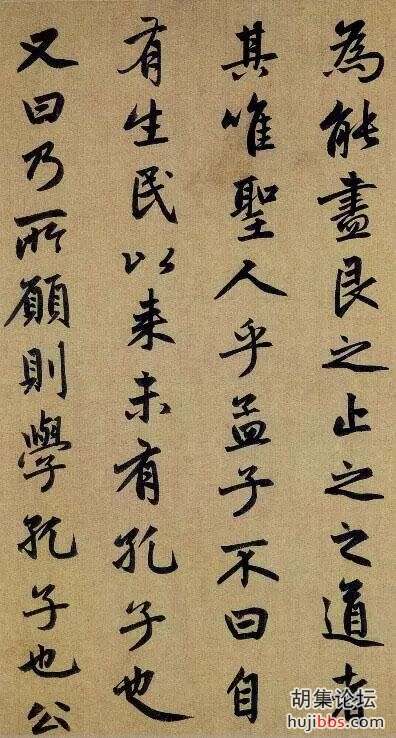 為能盡艮之止之之道者
其唯聖人乎孟子不曰自
有生民以来未有孔子也
又曰乃所願則學孔子也公
胡集论坛
hujibbs.com